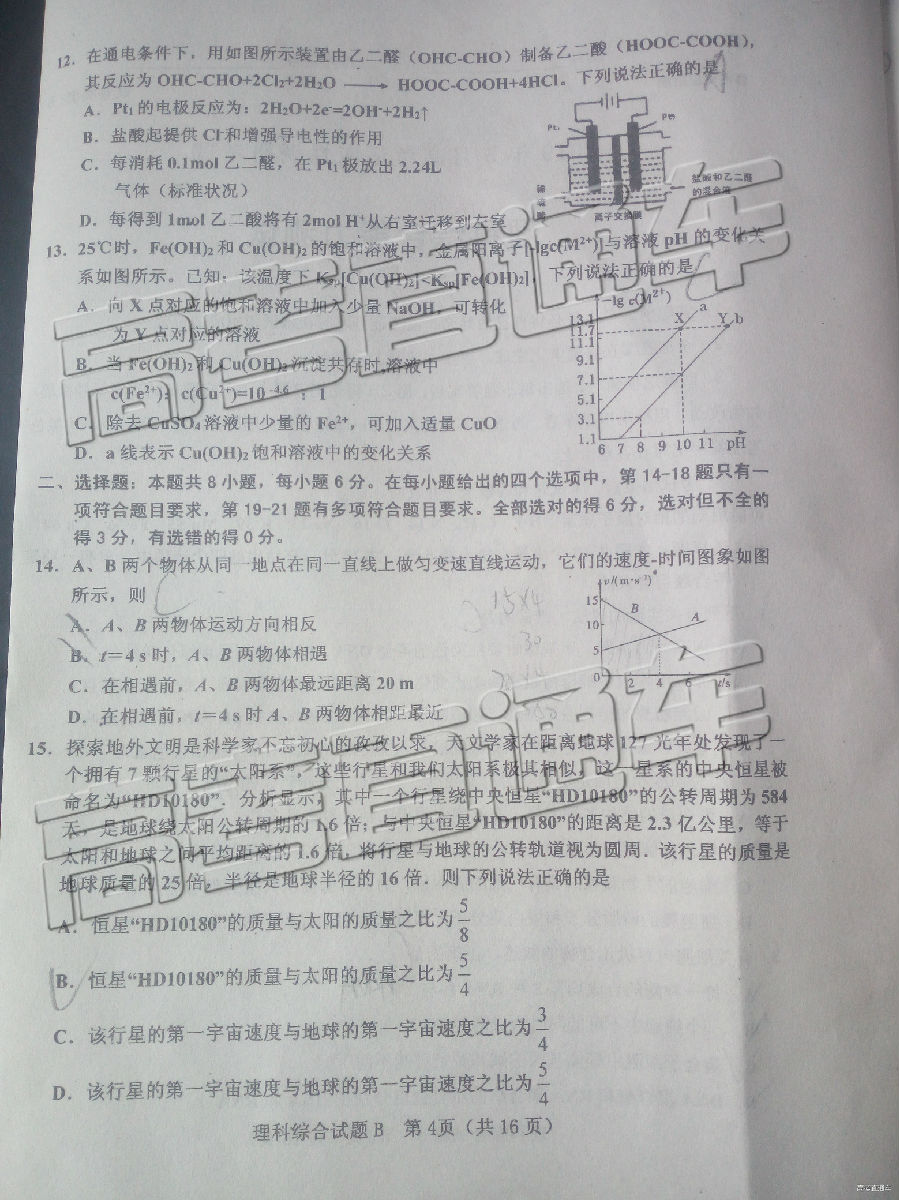 12. 在通电条件下，用如图所示装置由乙二醛（OHC-CHO）制备乙二酸（HOOC-COOH），
其反应为 OHC-CHO+2Cl₂+2H₂O ⟶ HOOC-COOH+4HCl。下列说法正确的是
A．Pt₁的电极反应为：2H₂O+2e⁻=2OH⁻+2H₂↑
B．盐酸起提供 Cl⁻和增强导电性的作用
C．每消耗 0.1mol 乙二醛，在 Pt₁ 极放出 2.24L
气体（标准状况）
D．每得到 1mol 乙二酸将有 2mol H⁺从右室迁移到左室
Pt₁
盐酸和乙二醛
的混合液
离子交换膜
13. 25℃时，Fe(OH)₂ 和 Cu(OH)₂ 的饱和溶液中，金属阳离子[-lgc(M²⁺)]与溶液 pH 的变化关
系如图所示。已知：该温度下 Ksp[Cu(OH)₂]<Ksp[Fe(OH)₂]，下列说法正确的是
A．向 X 点对应的饱和溶液中加入少量 NaOH，可转化
为 Y 点对应的溶液
B．当 Fe(OH)₂ 和 Cu(OH)₂ 沉淀共存时,溶液中
c(Fe²⁺)：c(Cu²⁺)=10⁻⁴·⁶：1
C．除去 CuSO₄ 溶液中少量的 Fe²⁺，可加入适量 CuO
D．a 线表示 Cu(OH)₂ 饱和溶液中的变化关系
-lg c(M²⁺)
a
X Y b
13.1
11.7
11.1
9.1
7.1
5.1
3.1
1.1
6 7 8 9 10 11 pH
二、选择题：本题共 8 小题，每小题 6 分。在每小题给出的四个选项中，第 14-18 题只有一
项符合题目要求，第 19-21 题有多项符合题目要求。全部选对的得 6 分，选对但不全的
得 3 分，有选错的得 0 分。
14. A、B 两个物体从同一地点在同一直线上做匀变速直线运动，它们的速度-时间图象如图
所示，则
A．A、B 两物体运动方向相反
B．t＝4 s 时，A、B 两物体相遇
C．在相遇前，A、B 两物体最远距离 20 m
D．在相遇前，t＝4 s 时 A、B 两物体相距最近
v/(m·s⁻¹)
15
B
10
A
5
0 2 4 6 t/s
15×4
30
15. 探索地外文明是科学家不忘初心的孜孜以求，天文学家在距离地球 127 光年处发现了一
个拥有 7 颗行星的“太阳系”，这些行星和我们太阳系极其相似，这一星系的中央恒星被
命名为“HD10180”．分析显示，其中一个行星绕中央恒星“HD10180”的公转周期为 584
天，是地球绕太阳公转周期的 1.6 倍；与中央恒星“HD10180”的距离是 2.3 亿公里，等于
太阳和地球之间平均距离的 1.6 倍．将行星与地球的公转轨道视为圆周．该行星的质量是
地球质量的 25 倍，半径是地球半径的 16 倍．则下列说法正确的是
A．恒星“HD10180”的质量与太阳的质量之比为 5/8
B．恒星“HD10180”的质量与太阳的质量之比为 5/4
C．该行星的第一宇宙速度与地球的第一宇宙速度之比为 3/4
D．该行星的第一宇宙速度与地球的第一宇宙速度之比为 5/4
理科综合试题 B 第 4 页（共 16 页）
高考直通车
高考直通车
高考直通车